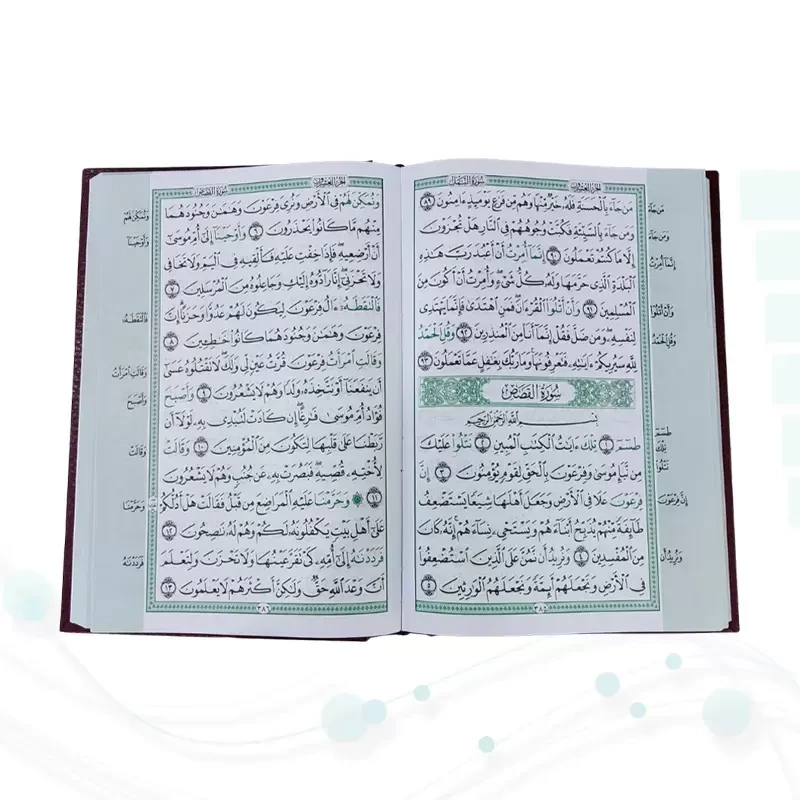 سُورَةُ النَّمْلِ الجُزْءُ العِشْرُونَ
مَن جَآءَ بِٱلْحَسَنَةِ فَلَهُۥ خَيْرٌ مِّنْهَا وَهُم مِّن فَزَعٍ يَوْمَئِذٍ ءَامِنُونَ ٨٩
وَمَن جَآءَ بِٱلسَّيِّئَةِ فَكُبَّتْ وُجُوهُهُمْ فِى ٱلنَّارِ هَلْ تُجْزَوْنَ
إِلَّا مَا كُنتُمْ تَعْمَلُونَ ٩٠ إِنَّمَآ أُمِرْتُ أَنْ أَعْبُدَ رَبَّ هَٰذِهِ
ٱلْبَلْدَةِ ٱلَّذِى حَرَّمَهَا وَلَهُۥ كُلُّ شَىْءٍ ۖ وَأُمِرْتُ أَنْ أَكُونَ مِنَ
ٱلْمُسْلِمِينَ ٩١ وَأَنْ أَتْلُوَا۟ ٱلْقُرْءَانَ ۖ فَمَنِ ٱهْتَدَىٰ فَإِنَّمَا يَهْتَدِى
لِنَفْسِهِۦ ۖ وَمَن ضَلَّ فَقُلْ إِنَّمَآ أَنَا۠ مِنَ ٱلْمُنذِرِينَ ٩٢ وَقُلِ ٱلْحَمْدُ
لِلَّهِ سَيُرِيكُمْ ءَايَٰتِهِۦ فَتَعْرِفُونَهَا ۚ وَمَا رَبُّكَ بِغَٰفِلٍ عَمَّا تَعْمَلُونَ ٩٣
سُورَةُ القَصَصِ
بِسْمِ ٱللَّهِ ٱلرَّحْمَٰنِ ٱلرَّحِيمِ
طسٓمٓ ١ تِلْكَ ءَايَٰتُ ٱلْكِتَٰبِ ٱلْمُبِينِ ٢ نَتْلُوا۟ عَلَيْكَ
مِن نَّبَإِ مُوسَىٰ وَفِرْعَوْنَ بِٱلْحَقِّ لِقَوْمٍ يُؤْمِنُونَ ٣ إِنَّ
فِرْعَوْنَ عَلَا فِى ٱلْأَرْضِ وَجَعَلَ أَهْلَهَا شِيَعًا يَسْتَضْعِفُ
طَآئِفَةً مِّنْهُمْ يُذَبِّحُ أَبْنَآءَهُمْ وَيَسْتَحْىِۦ نِسَآءَهُمْ ۚ إِنَّهُۥ كَانَ
مِنَ ٱلْمُفْسِدِينَ ٤ وَنُرِيدُ أَن نَّمُنَّ عَلَى ٱلَّذِينَ ٱسْتُضْعِفُوا۟
فِى ٱلْأَرْضِ وَنَجْعَلَهُمْ أَئِمَّةً وَنَجْعَلَهُمُ ٱلْوَٰرِثِينَ ٥
٣٨٥
مَن جَآءَ
وَمَن جَآءَ
إِنَّمَآ أُمِرْتُ
وَأَنْ أَتْلُوَا۟
وَقُلِ ٱلْحَمْدُ
طسٓمٓ
تِلْكَ
نَتْلُوا۟
إِنَّ فِرْعَوْنَ
وَنُرِيدُ أَن
الجُزْءُ العِشْرُونَ سُورَةُ القَصَصِ
وَنُمَكِّنَ لَهُمْ فِى ٱلْأَرْضِ وَنُرِىَ فِرْعَوْنَ وَهَٰمَٰنَ وَجُنُودَهُمَا
مِنْهُم مَّا كَانُوا۟ يَحْذَرُونَ ٦ وَأَوْحَيْنَآ إِلَىٰٓ أُمِّ مُوسَىٰٓ
أَنْ أَرْضِعِيهِ ۖ فَإِذَا خِفْتِ عَلَيْهِ فَأَلْقِيهِ فِى ٱلْيَمِّ وَلَا تَخَافِى
وَلَا تَحْزَنِىٓ ۖ إِنَّا رَآدُّوهُ إِلَيْكِ وَجَاعِلُوهُ مِنَ ٱلْمُرْسَلِينَ ٧
فَٱلْتَقَطَهُۥٓ ءَالُ فِرْعَوْنَ لِيَكُونَ لَهُمْ عَدُوًّا وَحَزَنًا ۗ إِنَّ
فِرْعَوْنَ وَهَٰمَٰنَ وَجُنُودَهُمَا كَانُوا۟ خَٰطِـِٔينَ ٨
وَقَالَتِ ٱمْرَأَتُ فِرْعَوْنَ قُرَّتُ عَيْنٍ لِّى وَلَكَ ۖ لَا تَقْتُلُوهُ عَسَىٰٓ
أَن يَنفَعَنَآ أَوْ نَتَّخِذَهُۥ وَلَدًا وَهُمْ لَا يَشْعُرُونَ ٩ وَأَصْبَحَ
فُؤَادُ أُمِّ مُوسَىٰ فَٰرِغًا ۖ إِن كَادَتْ لَتُبْدِى بِهِۦ لَوْلَآ أَن
رَّبَطْنَا عَلَىٰ قَلْبِهَا لِتَكُونَ مِنَ ٱلْمُؤْمِنِينَ ١٠ وَقَالَتْ
لِأُخْتِهِۦ قُصِّيهِ ۖ فَبَصُرَتْ بِهِۦ عَن جُنُبٍ وَهُمْ لَا يَشْعُرُونَ
١١ ۞ وَحَرَّمْنَا عَلَيْهِ ٱلْمَرَاضِعَ مِن قَبْلُ فَقَالَتْ هَلْ أَدُلُّكُمْ
عَلَىٰٓ أَهْلِ بَيْتٍ يَكْفُلُونَهُۥ لَكُمْ وَهُمْ لَهُۥ نَٰصِحُونَ ١٢
فَرَدَدْنَٰهُ إِلَىٰٓ أُمِّهِۦ كَىْ تَقَرَّ عَيْنُهَا وَلَا تَحْزَنَ وَلِتَعْلَمَ
أَنَّ وَعْدَ ٱللَّهِ حَقٌّ وَلَٰكِنَّ أَكْثَرَهُمْ لَا يَعْلَمُونَ ١٣
٣٨٦
وَنُمَكِّنَ لَهُمْ
وَأَوْحَيْنَآ
فَٱلْتَقَطَهُۥٓ
وَقَالَتِ ٱمْرَأَتُ
وَأَصْبَحَ
وَقَالَتْ
وَحَرَّمْنَا
فَرَدَدْنَٰهُ